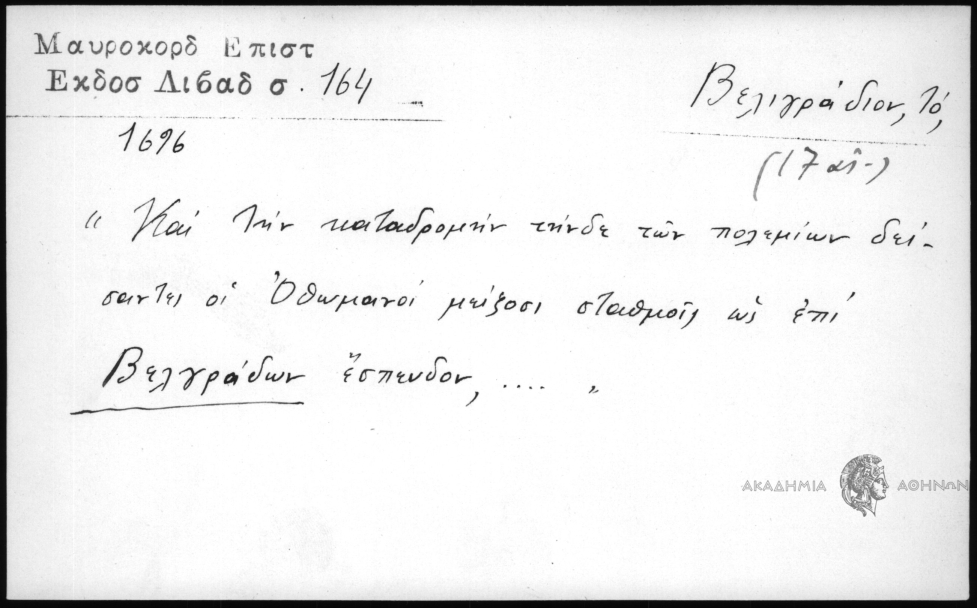 Μαυροκορδ Επιστ
Εκδοσ Λιβαδ σ. 164
Βελιγράδιον, τό,
1696
(17 αἰ.)
“ Καί τήν καταδρομήν τήνδε τῶν πολεμίων δεί-
σαντες οἱ Ὀθωμανοί μείζοσι σταθμοῖς ὡς ἐπί
Βελγράδων ἔσπευδον, .... „
ΑΚΑΔΗΜΙΑ ΑΘΗΝΩΝ